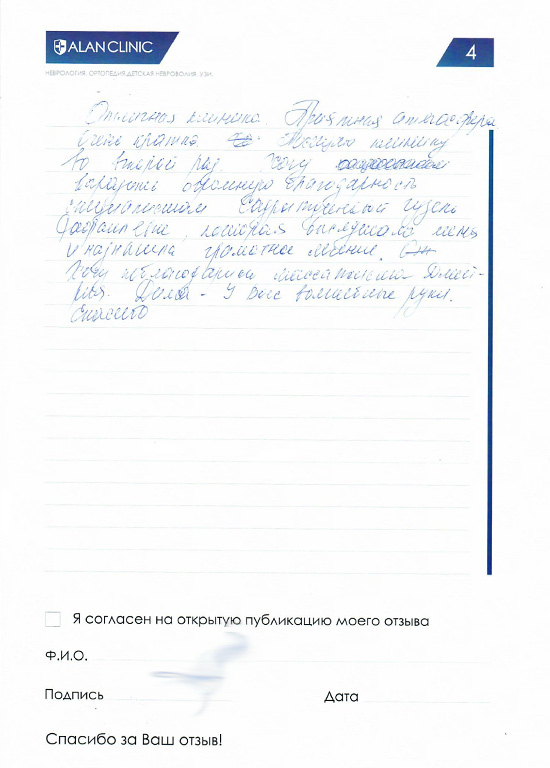 ALAN CLINIC
4
НЕВРОЛОГИЯ. ОРТОПЕДИЯ. ДЕТСКАЯ НЕВРОЛОГИЯ. УЗИ.
Отличная клиника. Приятная атмосфера
Очень приятно. клинику
во второй раз Хочу
выразить огромную благодарность
специалистам Гузель
которая выслушала меня
и назначила грамотное лечение.
Хочу поблагодарить массажиста
Дима - У Вас волшебные руки.
Спасибо
Я согласен на открытую публикацию моего отзыва
Ф.И.О.
Подпись Дата
Спасибо за Ваш отзыв!